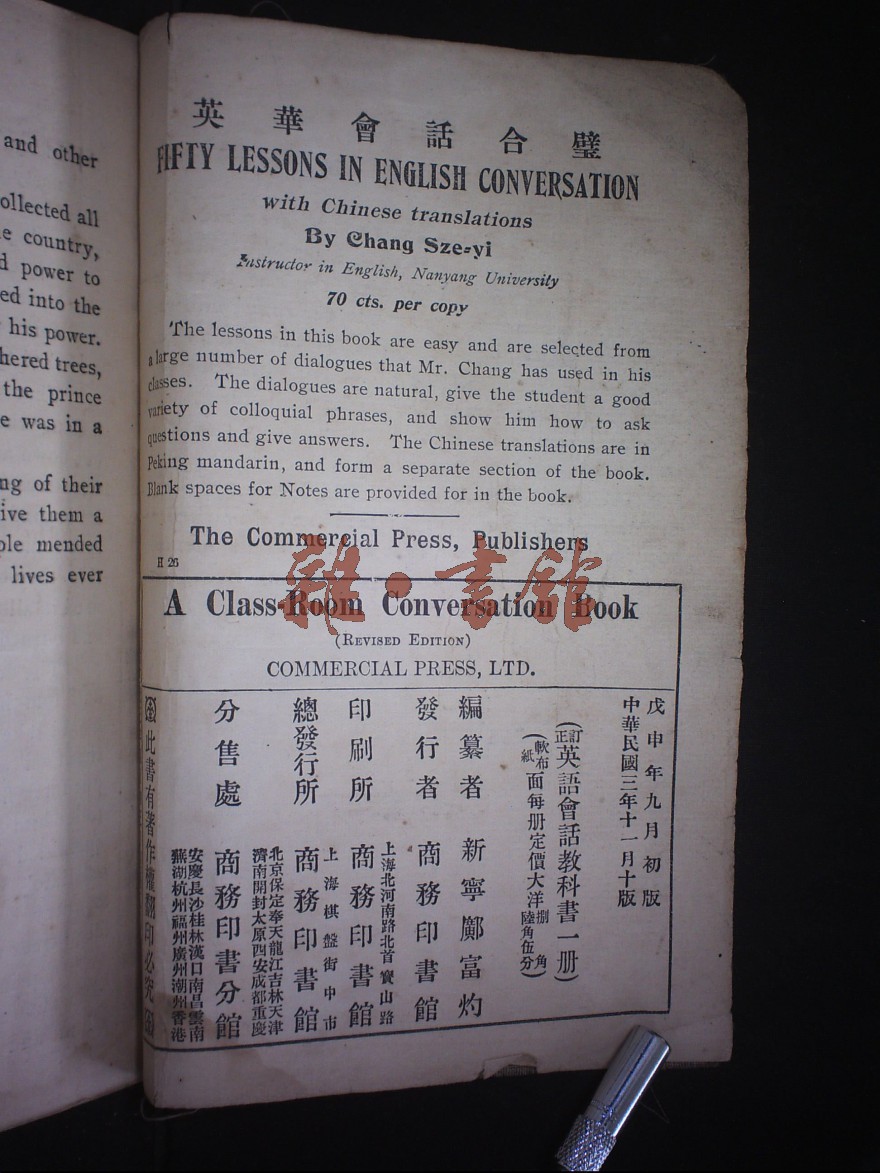 and other
ollected all
e country,
d power to
ed into the
his power.
hered trees,
the prince
e was in a
ng of their
ive them a
ple mended
lives ever
英華會話合璧
FIFTY LESSONS IN ENGLISH CONVERSATION
with Chinese translations
By Chang Sze-yi
Instructor in English, Nanyang University
70 cts. per copy
The lessons in this book are easy and are selected from
a large number of dialogues that Mr. Chang has used in his
classes. The dialogues are natural, give the student a good
variety of colloquial phrases, and show him how to ask
questions and give answers. The Chinese translations are in
Peking mandarin, and form a separate section of the book.
Blank spaces for Notes are provided for in the book.
The Commercial Press, Publishers
H 26
雜·書館
A Class-Room Conversation Book
(REVISED EDITION)
COMMERCIAL PRESS, LTD.
戊申年九月初版
中華民國三年十一月十版
(訂正英語會話教科書一册)
(軟布面每册定價大洋捌角)
(紙面每册定價大洋陸角伍分)
編纂者 新寧鄺富灼
發行者 商務印書館
上海北河南路北首寶山路
印刷所 商務印書館
上海棋盤街中市
總發行所 商務印書館
北京保定奉天龍江吉林天津
濟南開封太原西安成都重慶
分售處 商務印書分館
安慶長沙桂林漢口南昌雲南
蕪湖杭州福州廣州潮州香港
此書有著作權翻印必究